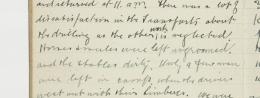 and returned at 11. a.m. There was a lot of
dissatisfaction in the Transports about
the drilling as the other work is neglected.
Horses & mules were left ungroomed
and the stables dirty. Only a few men
were left in camp, when the drivers
went out with their limbers. We were